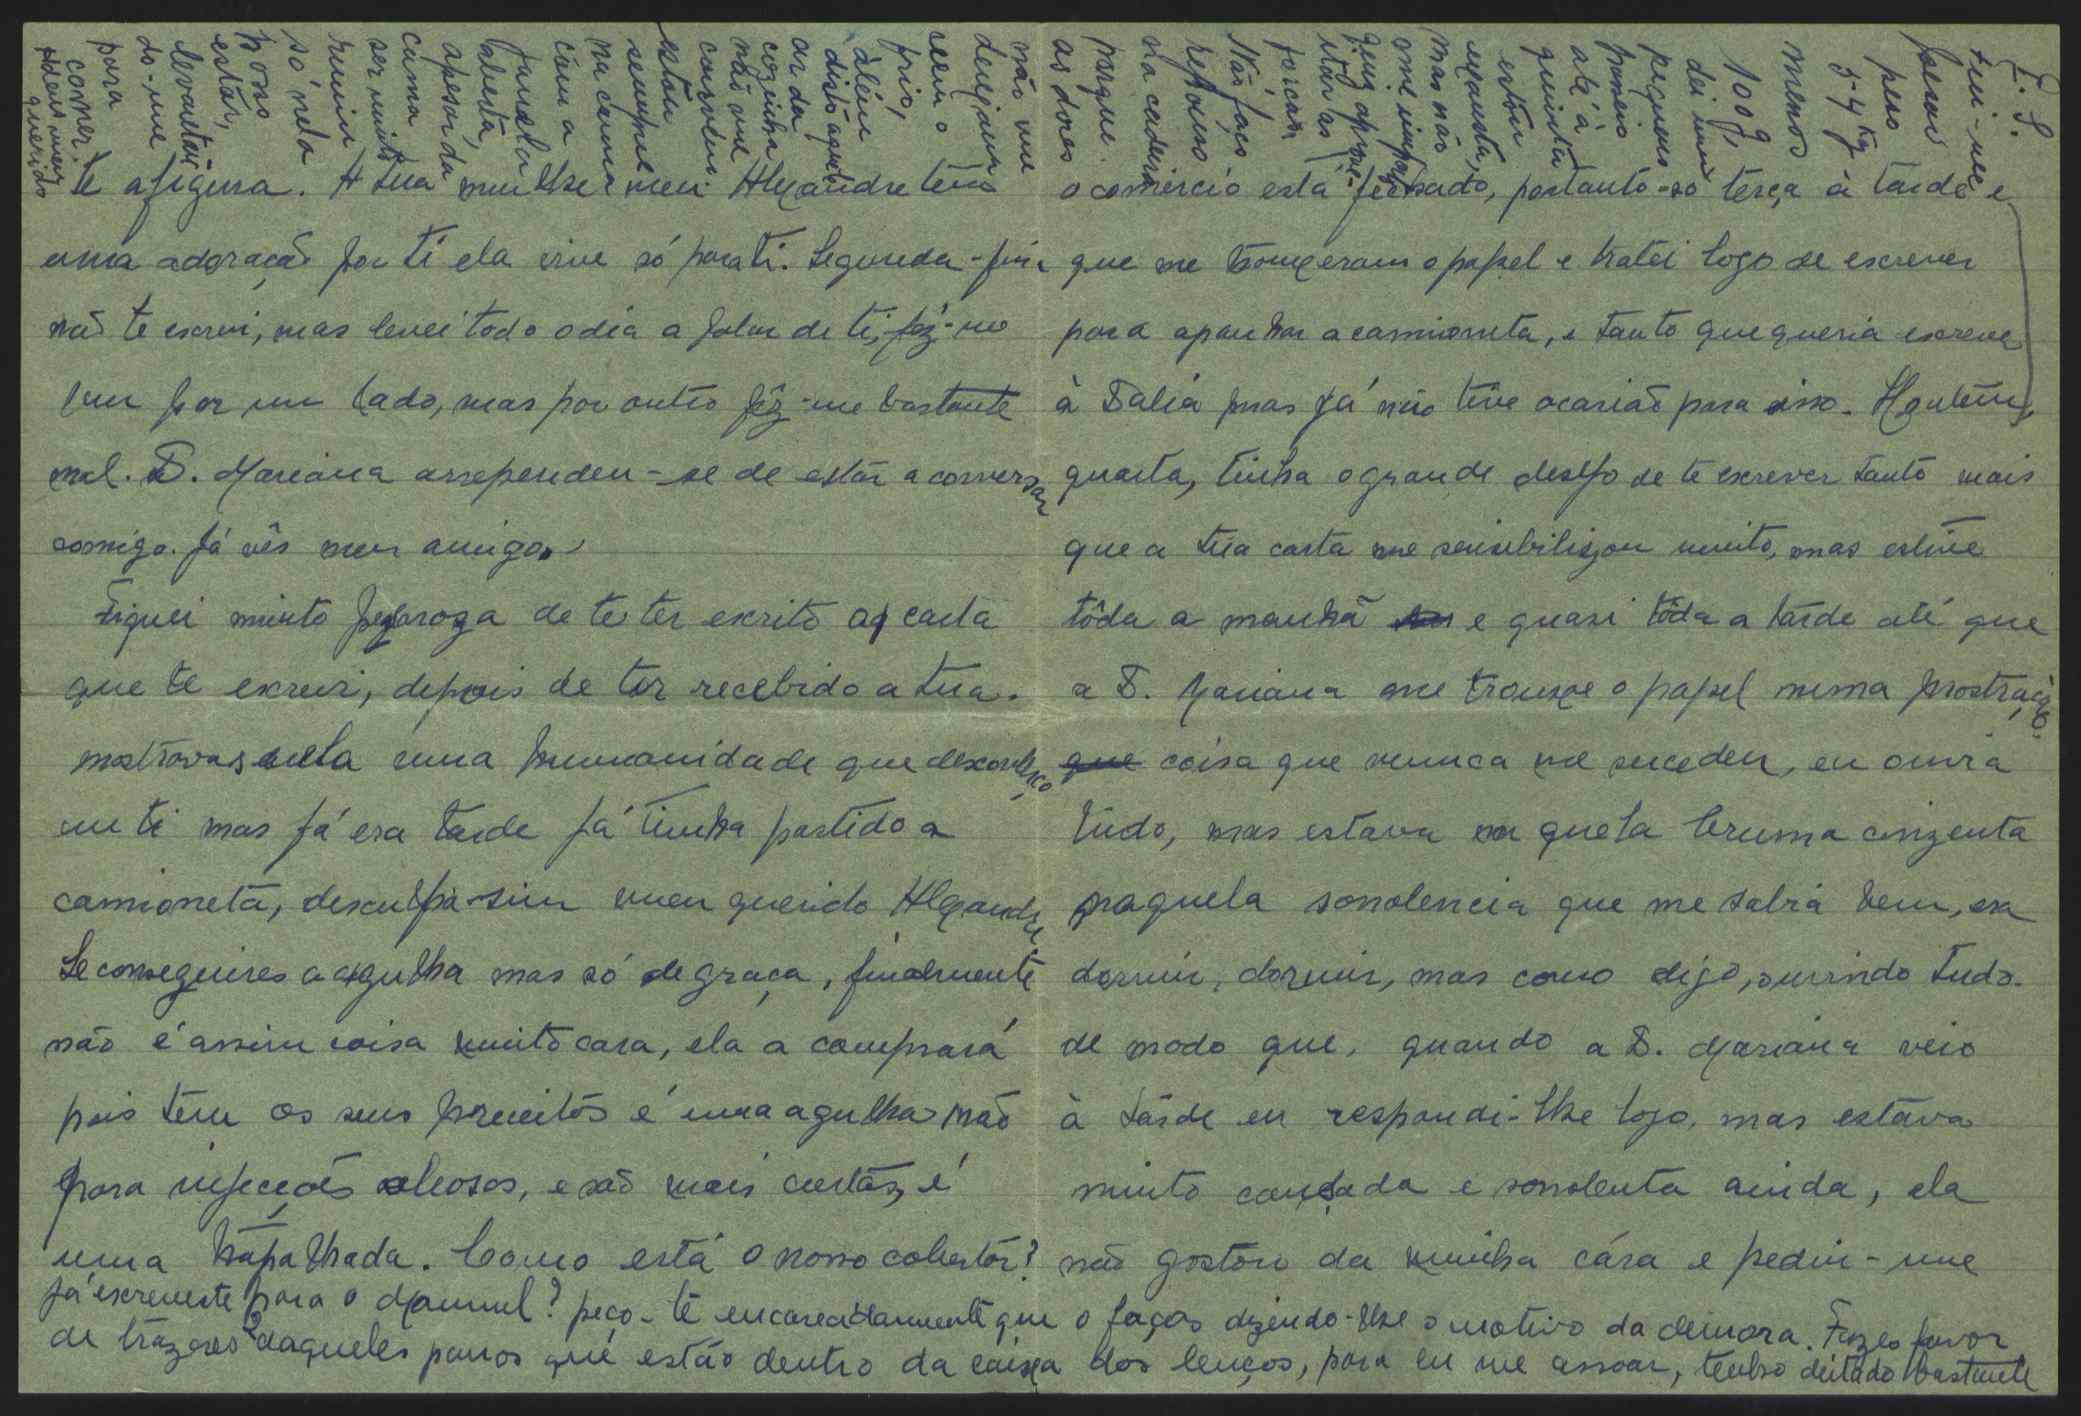 te afigura. A tua mulher meu Alexandre tem
uma adoração por ti ela vive só para ti. Segunda-feira
não te escrevi, mas levei todo o dia a falar de ti, fêz-me
bem por um lado, mas por outro fêz-me bastante
mal. D. Mariana arrependeu-se de estar a conversar
comigo. Já vês meu amigo.
Fiquei muito pezaroza de te ter escrito a carta
que te escrevi, depois de ter recebido a tua.
mostravas nela uma humanidade que desconheço
em ti mas já era tarde já tinha partido a
camioneta, desculpa sim meu querido Alexandre
Se conseguires a agulha mas só de graça, finalmente
não é assim coisa muito cara, ela a comprará
pois tem os seus preceitos é uma agulha não
para injecções oleosas, e são mais curtas, é
uma trapalhada. Como está o nosso cobertor?
Já escreveste para o Manuel? peço-te encarecidamente que o faças dizendo-lhe o motivo da demora. Fazes favor
de trazeres daqueles panos que estão dentro da caixa dos lenços, para eu me assoar, tenho deitado bastante
o comércio está fechado, portanto só terça à tarde é
que me trouxeram o papel e tratei logo de escrever
para apanhar a camioneta, e tanto que queria escrever
à Dália mas já não tive ocasião para isso. Hontem,
quarta, tinha o grande desejo de te escrever tanto mais
que a tua carta me sensibilizou muito, mas estive
tôda a manhã e quasi tôda a tarde até que
a D. Mariana me trouxe o papel numa prostração.
que coisa que nunca me sucedeu, eu ouvia
tudo, mas estava naquela bruma cinzenta
naquela sonolencia que me sabia bem, era
dormir, dormir, mas como digo, ouvindo tudo.
de modo que, quando a D. Mariana veio
à tarde eu respondi-lhe logo, mas estava
muito cansada e sonolenta ainda, ela
não gostou da minha cára e pediu-me
P.S.
fui-me
pesar
peso
54 kg
menos
100g,
dei um
pequeno
passeio
até à
quinta
estou
exausta,
mas não
me
que
itar as
forças
Não faço
repouso
na cadeira
porque
as dores
não me
deixam
com o
frio,
além
disto aqui
ar da
cozinha
não me
convém
estou
sempre
na cama
com a
janela
aberta
apesar da
cama
ser muito
ruim
só nela
posso
estar,
levantei
do-me
para
comer.
Adeus meu
querido